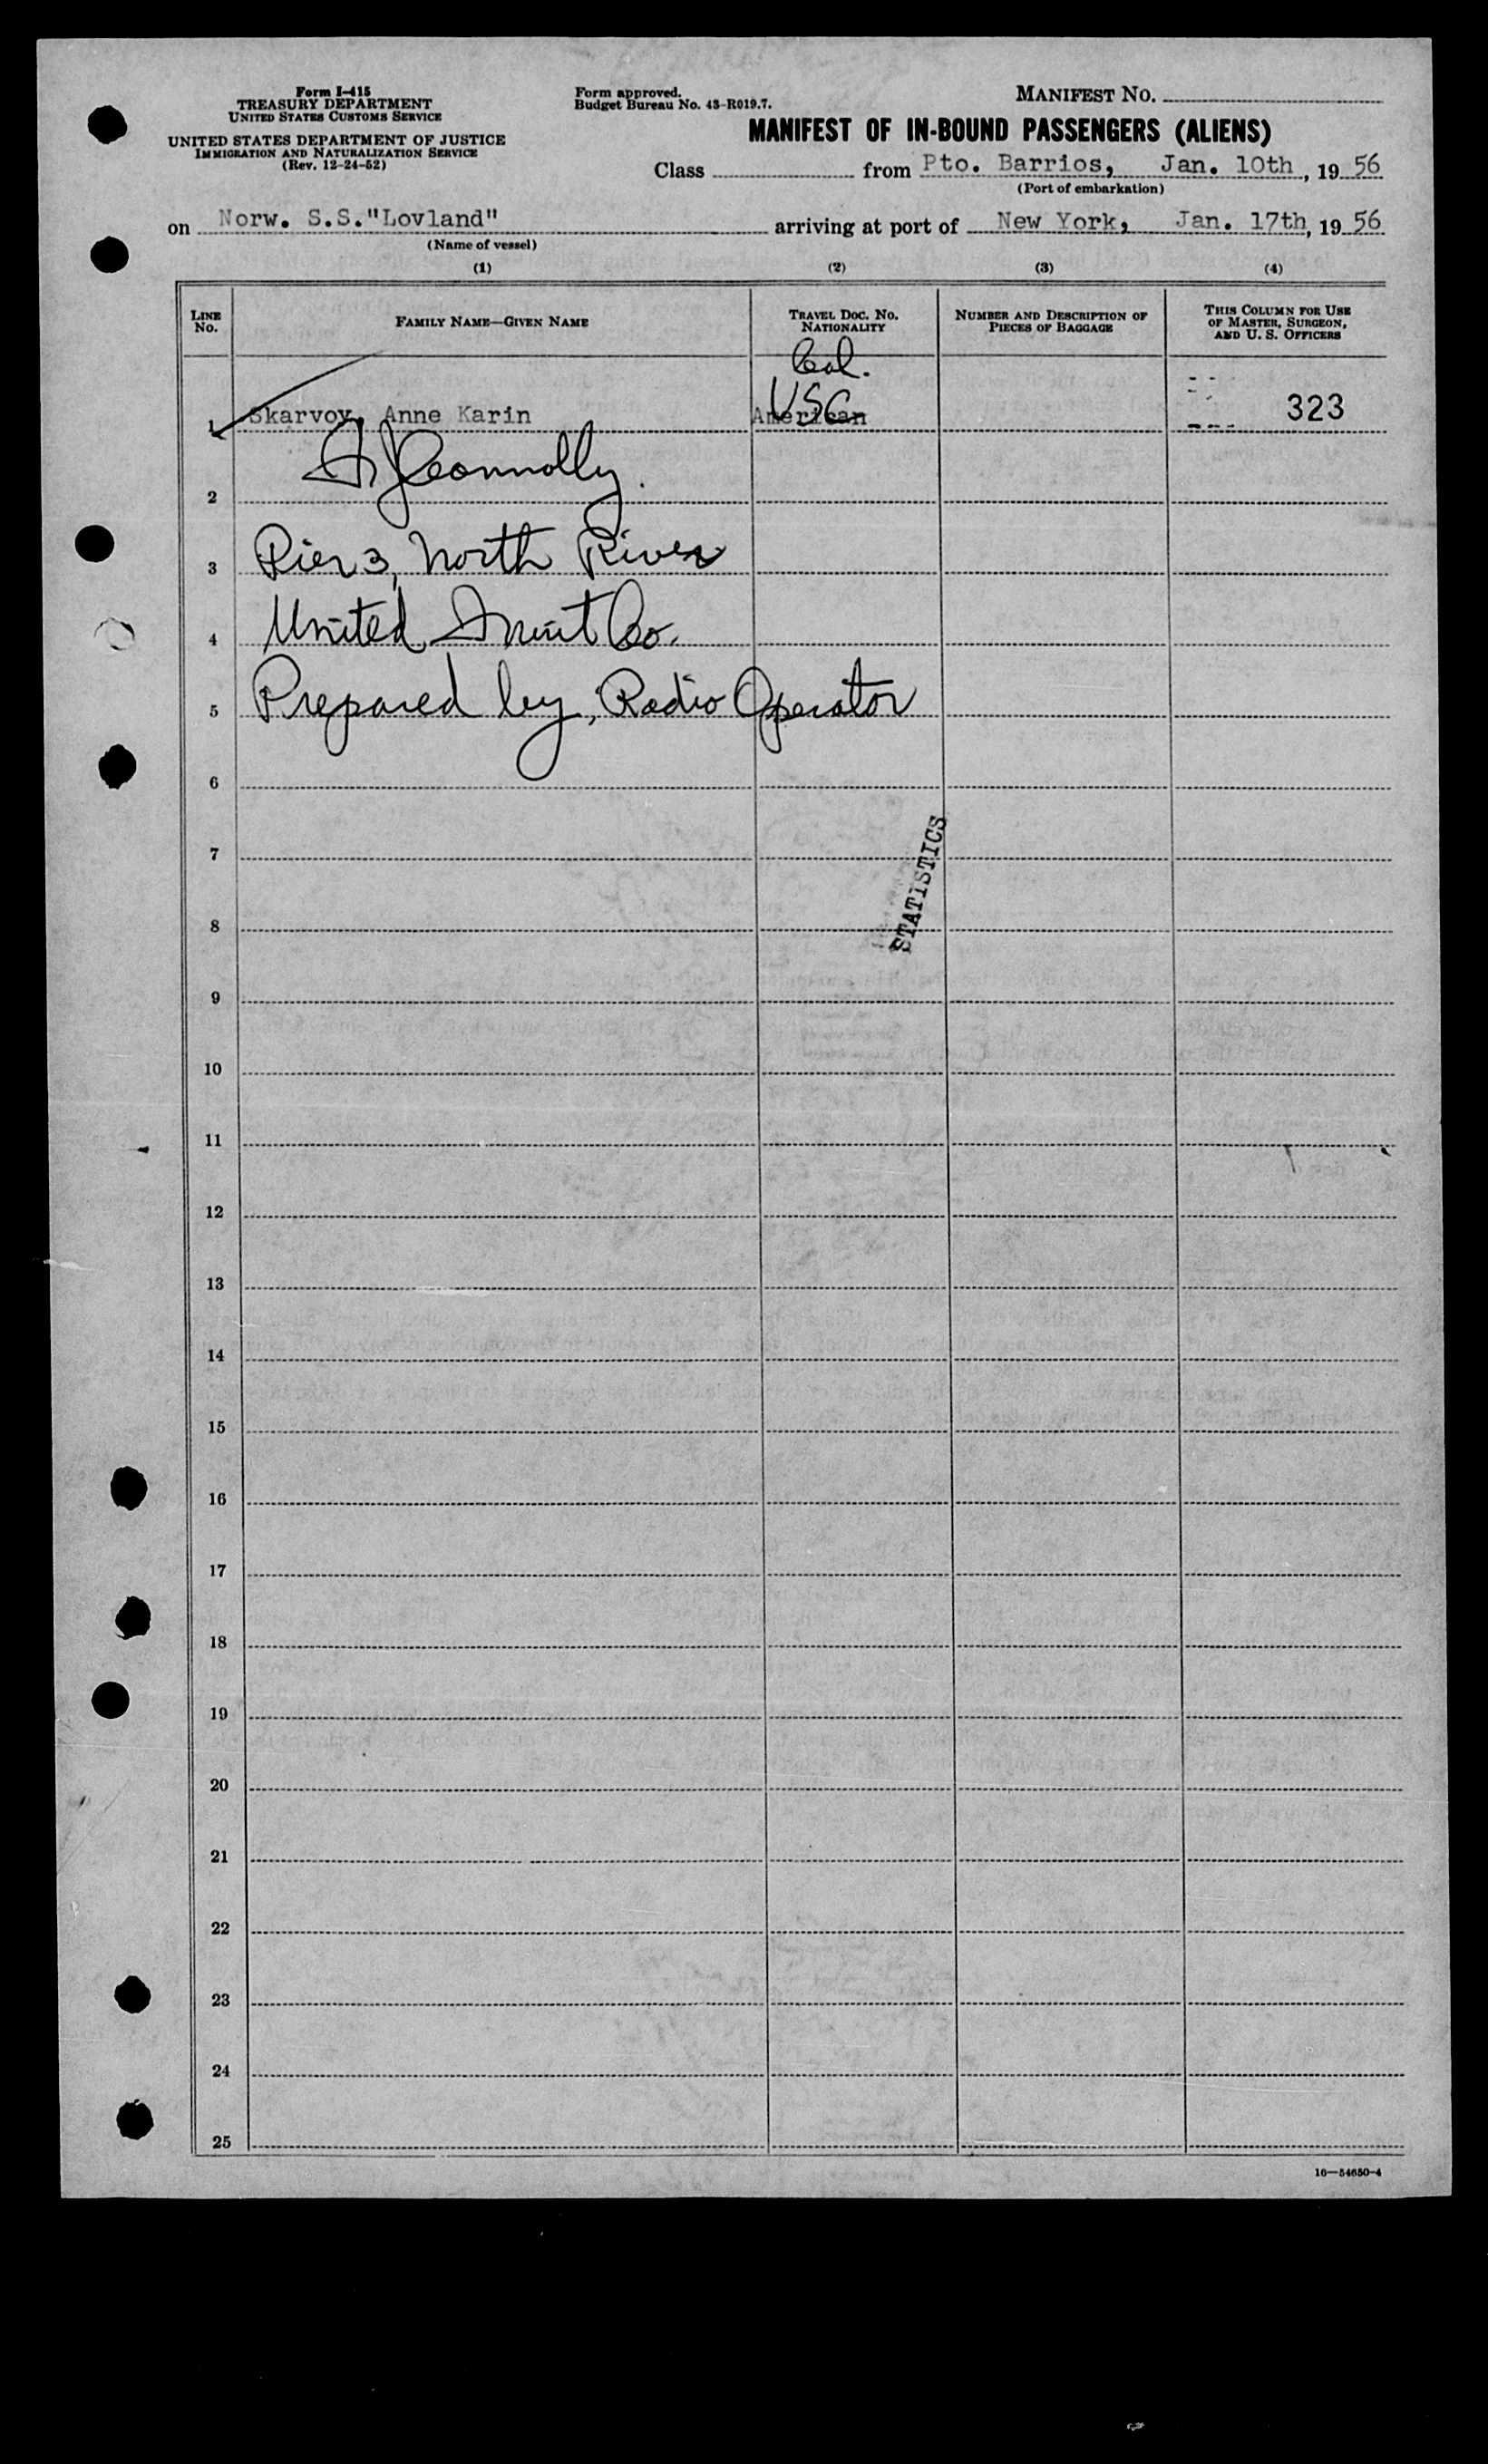 Form I-415
TREASURY DEPARTMENT
UNITED STATES CUSTOMS SERVICE
UNITED STATES DEPARTMENT OF JUSTICE
IMMIGRATION AND NATURALIZATION SERVICE
(Rev. 12-24-52)
Form approved.
Budget Bureau No. 43-R019.7.
MANIFEST NO.
MANIFEST OF IN-BOUND PASSENGERS (ALIENS)
Class from Pto. Barrios, Jan. 10th, 19 56
(Port of embarkation)
on Norw. S.S."Lovland" arriving at port of New York, Jan. 17th, 19 56
(Name of vessel)
(1) (2) (3) (4)
LINE No. FAMILY NAME—GIVEN NAME TRAVEL DOC. NO. NATIONALITY NUMBER AND DESCRIPTION OF PIECES OF BAGGAGE THIS COLUMN FOR USE OF MASTER, SURGEON, AND U. S. OFFICERS
Col.
USC
1 Skarvoy, Anne Karin American 323
Connolly.
2
3 Pier 3, North River
4 United Fruit Co.
5 Prepared by, Radio Operator
6
7
STATISTICS
8
9
10
11
12
13
14
15
16
17
18
19
20
21
22
23
24
25
16—54650-4